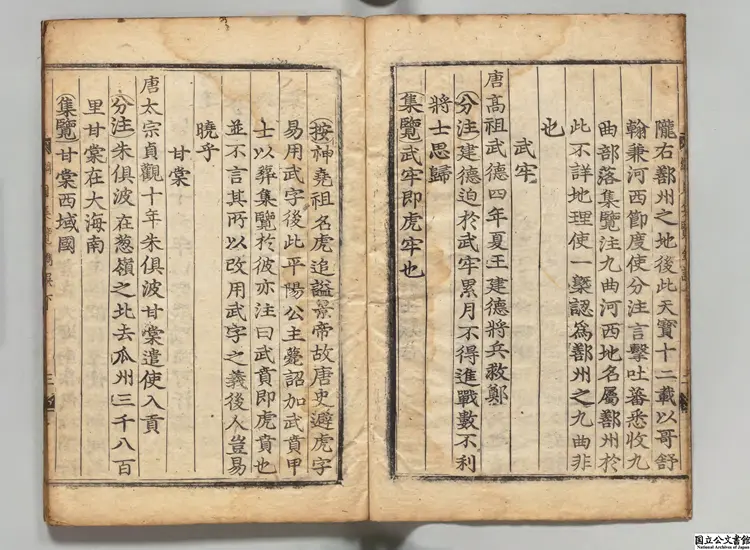 隴右鄯州之地後此天寶十二載以哥舒
翰兼河西節度使分注言擊吐蕃悉收九
曲部落集覽注九曲河西地名屬鄯州於
此不詳地理使一槩認爲鄯州之九曲非
也
武牢
唐高祖武德四年夏王建德將兵救鄭
分注建德迫於武牢累月不得進戰數不利
將士思歸
集覽武牢即虎牢也
按神堯祖名虎追謚景帝故唐史避虎字
易用武字後此平陽公主薨詔加武賁甲
士以葬集覽於彼亦注曰武賁即虎賁也
並不言其所以改用武字之義後人豈易
曉乎
甘棠
唐太宗貞觀十年朱俱波甘棠遣使入貢
分注朱俱波在葱嶺之北去瓜州三千八百
里甘棠在大海南
集覽甘棠西域國
国立公文書館
National Archives of Japan